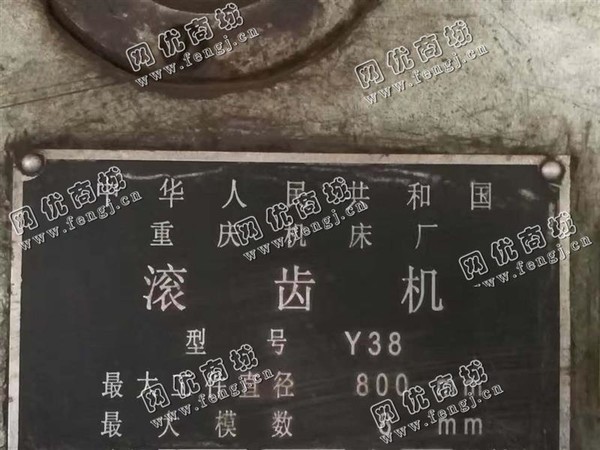 中华人民共和国
重庆机床厂
滚齿机
型号 Y38
最大工件直径 800 mm
最大模数 mm
网优商城
www.fengj.cn
网优商城
www.fengj.cn
网优商城
www.fengj.cn
网优商城
www.fengj.cn
网优商城
www.fengj.cn
网优商城
www.fengj.cn
网优商城
www.fengj.cn
网优商城
www.fengj.cn